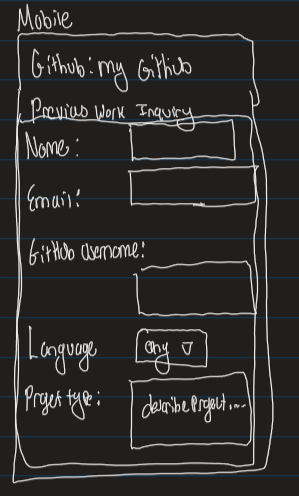 Mobile
Github: my GitHub
Previous Work Inquiry
Name:
Email:
GitHub Username:
Language
any
Project type:
describe Project....